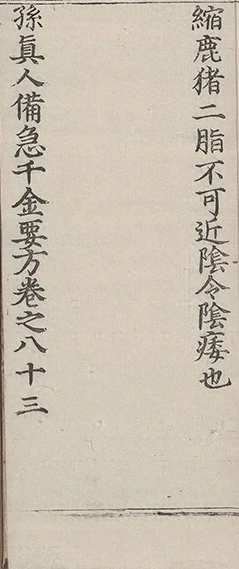 縮鹿猪二脂不可近陰令陰痿也
孫眞人備急千金要方卷之八十三